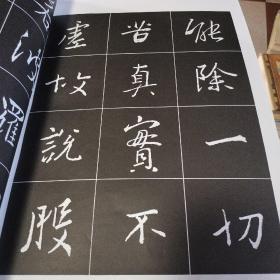 能除一切
苦真實不
虛故說般
若波羅